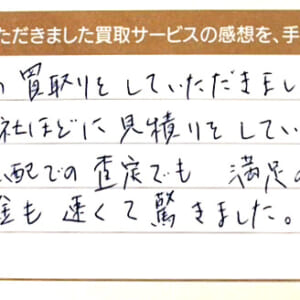 ただきました買取サービスの感想を、手
買取りをしていただきまし
社ほどに見積りをしてい
配での査定でも 満足の
金も速くて驚きました。